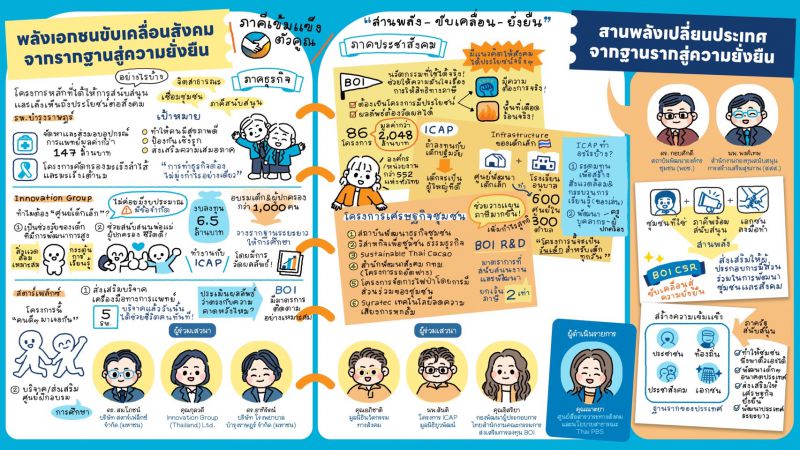 พลังเอกชนขับเคลื่อนสังคม
จากรากฐานสู่ความยั่งยืน
ภาคีเข้มแข็ง
ตัวคูณ
อย่างไรบ้าง
โครงการหลักที่ได้ให้การสนับสนุน
และเล็งเห็นถึงประโยชน์ต่อสังคม
รพ.บำรุงราษฎร์
จัดหาและส่งมอบอุปกรณ์
การแพทย์มูลค่ากว่า
147 ล้านบาท
โครงการคัดกรองมะเร็งลำไส้
และมะเร็งเต้านม
จิตสาธารณะ
เชื่อมชุมชน
ภาคีสนับสนุน
ภาคธุรกิจ
เป้าหมาย
ทำให้คนมีสุขภาพดี
ป้องกันเชิงรุก
ส่งเสริมความเสมอภาค
"การทำธุรกิจต้อง
ไม่มุ่งกำไรอย่างเดียว"
Innovation Group
ทำไมต้อง "ศูนย์เด็กเล็ก"?
① เป็นช่วงวัยของเด็ก
ที่มีพัฒนาการสูง
② ช่วยสนับสนุนพ่อแม่
ผู้ปกครอง ชีวิตดี!
ไม่ค่อยมีงบประมาณ
มีข้อจำกัด
สิ่งแวดล้อม
เหมาะสม
กระตุ้น
การเรียนรู้
งบลงทุน
6.5
ล้านบาท
อบรมเด็ก&ผู้ปกครอง
กว่า 1,000 คน
วางรากฐานระยะยาว
ให้การศึกษา
ทำงานกับ
ICAP
โดยมีการ
วัดผลลัพธ์!
สตาร์เฟล็กซ์
โครงการนี้
"คนดีๆ มาเจอกัน"
① ส่งเสริมบริจาค
เครื่องมือทางการแพทย์
5
รพ.
บริจาคแล้ววันนั้น
ได้ช่วยชีวิตคนทันที!
② บริจาค/ส่งเสริม
ศูนย์ฝึกอบรม
การศึกษา
ประเมินผลลัพธ์
ว่าตรงกับความ
คาดหวังไหม?
BOI
มีมาตรการ
ติดตาม
อย่างเหมาะสม
ผู้ร่วมเสวนา
ดร. สมโภชน์
บริษัท สตาร์เฟล็กซ์
จำกัด (มหาชน)
คุณกุลวดี
Innovation Group
(Thailand) Ltd.
ดร. อาทิรัตน์
บริษัท โรงพยาบาล
บำรุงราษฎร์ จำกัด (มหาชน)
"สานพลัง - ขับเคลื่อน - ยั่งยืน"
ภาคประชาสังคม
BOI
นวัตกรรมที่ใช้ได้จริง!
การให้สิทธิทางภาษี
ต้องเป็นโครงการมีประโยชน์
ผลลัพธ์ต้องวัดผลได้
มีแนวคิดให้สังคม
ได้ประโยชน์จริงๆ!
มีความ
ต้องการจริง
พื้นที่เดือด
ร้อนจริง!
86
โครงการ
มูลค่ากว่า
2,048
ล้านบาท
องค์กร
หน่วยงาน
กว่า 552
แห่งทั่วไทย
ICAP
ถ้าลงทุนกับ
เด็กปฐมวัย
เด็กจะเป็น
ผู้ใหญ่ที่ดี
Infrastructure
ของเด็กเล็ก
ศูนย์พัฒนา
เด็กเล็ก
โรงเรียน
อนุบาล
600
ศูนย์ใน
500
ตำบล
ICAP ทำ
อะไรบ้าง?
"โครงการจะเป็น
วันเด็ก สำหรับเด็ก
ทุกวัน"
โครงการเศรษฐกิจชุมชน
① สถาบันพัฒนาธุรกิจชุมชน
② วิสาหกิจเพื่อชุมชน ธรรมธุรกิจ
③ Sustainable Thai Cacao
④ สำนักพัฒนาสังคม กทม.
⑤ โครงการจัดการไฟป่าโดยการมี
ส่วนร่วมของชุมชน
⑥ Suratec เทคโนโลยีลดความ
เสี่ยงการพกล้ม
ช่วยวางแผน
ภาษีมากขึ้น!
เพิ่มกำไรสูงสุด
BOI R&D
มาตรการที่
สนับสนุนงาน
และการพัฒนา
ยกเว้น
ภาษี 2 เท่า
ผู้ร่วมเสวนา
คุณอภิชาติ
มูลนิธินวัตกรรม
ทางสังคม
นพ.สันติ
โครงการ ICAP
มูลนิธิยุวพัฒน์
ส่งเสริมการลงทุน BOI
ผู้ดำเนินรายการ
คุณณาตยา
ศูนย์สื่อสาธารณะทางสังคม
และนโยบายสาธารณะ
Thai PBS
สานพลังเปลี่ยนประเทศ
จากฐานรากสู่ความยั่งยืน
ดร. กอบศักดิ์
สถาบันพัฒนาองค์กร
ชุมชน (พอช.)
นพ. พงศ์เทพ
สำนักงานกองทุนสนับสนุน
การสร้างเสริมสุขภาพ (สสส.)
ชุมชนที่ใช่
ภาคีพร้อม
สนับสนุน
เอกชน
ลงมือทำ
สานพลัง
BOI CSR
ขับเคลื่อนสู่
ความยั่งยืน
ส่งเสริมให้ผู้
ประกอบการมีส่วน
ร่วมในการพัฒนา
ชุมชนและสังคม
สร้างความเข้มแข็ง
ประชาชน
ท้องถิ่น
ประชาสังคม
เอกชน
ฐานรากของประเทศ
ภาครัฐ
สนับสนุน
ทำให้ชุมชน
พึ่งพาตัวเองได้
พัฒนาเด็กๆ
อนาคตประเทศ
ส่งเสริมให้
เศรษฐกิจ
ยั่งยืน
พัฒนาประเทศ
ระยะยาว